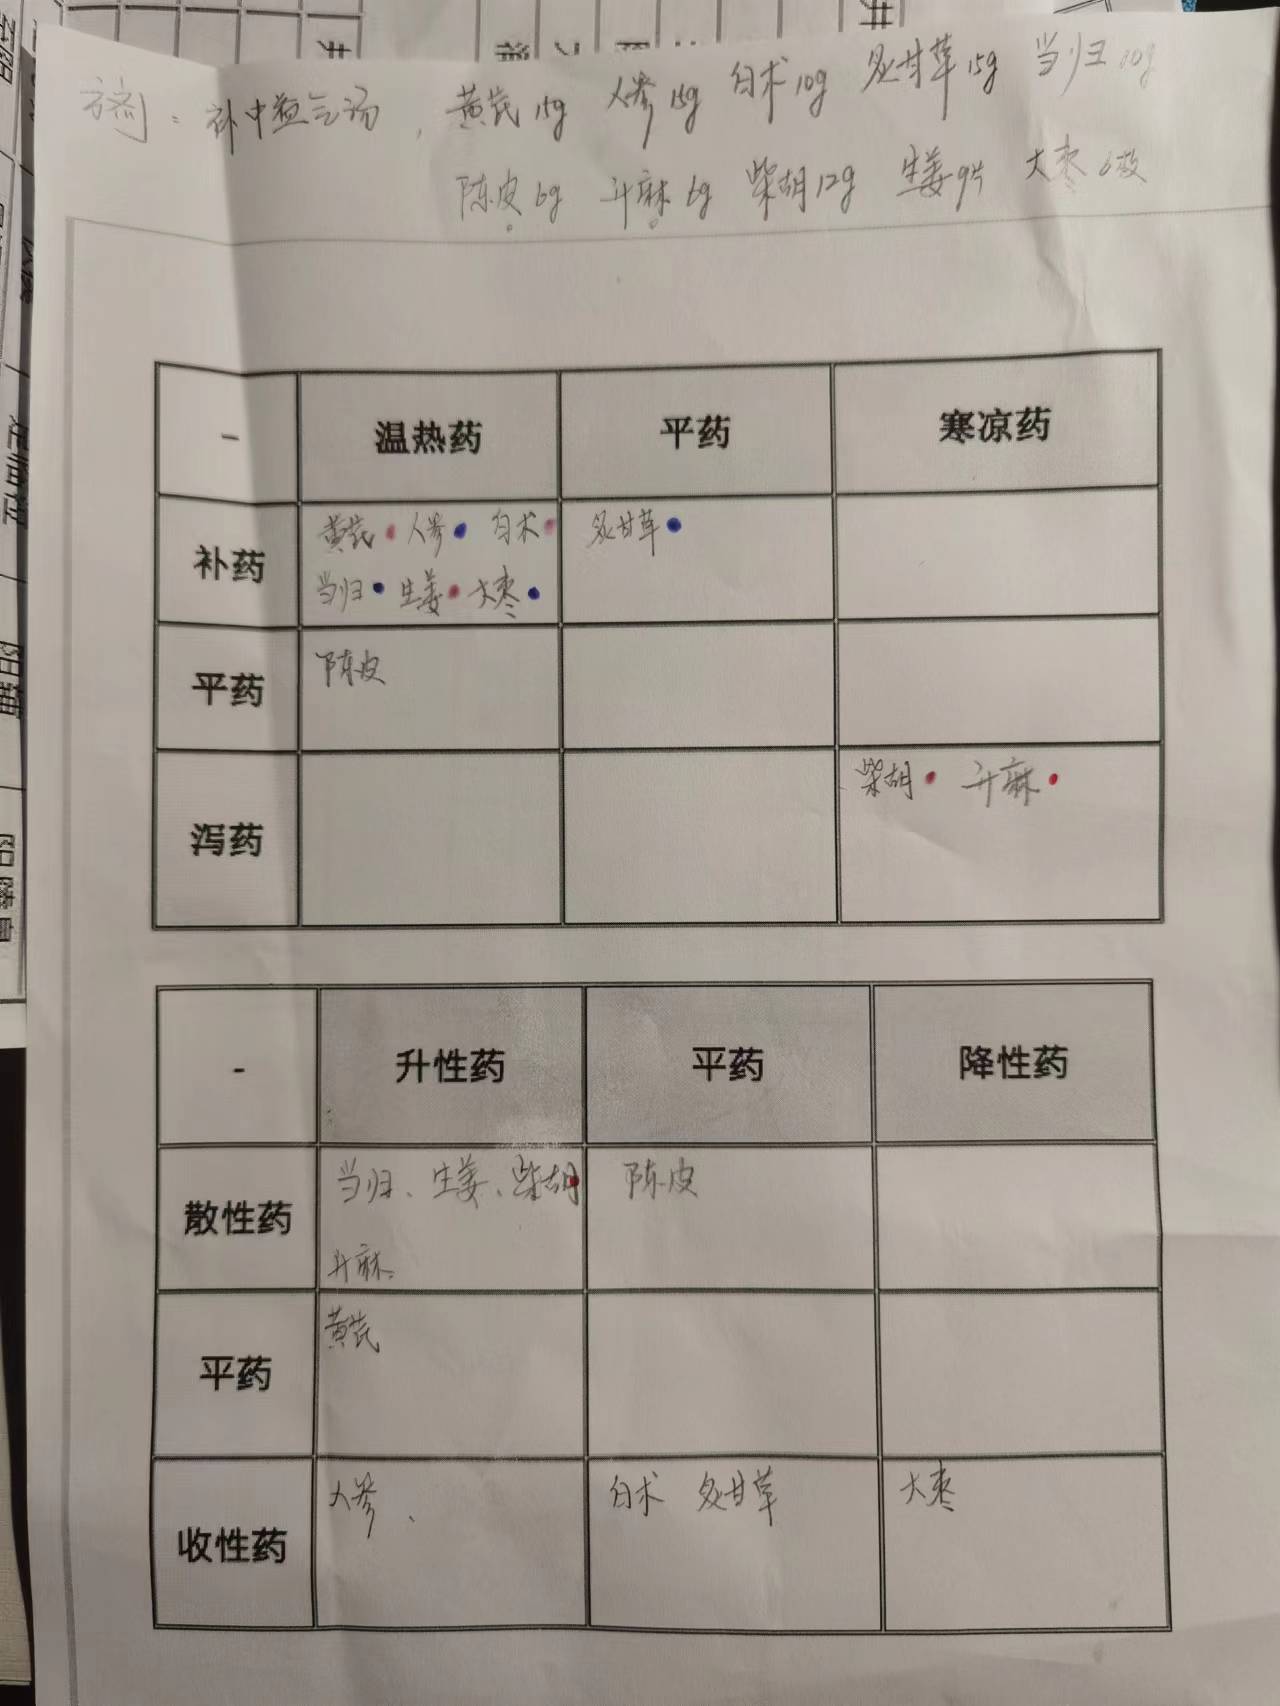 方剂：补中益气汤，黄芪15g 人参15g 白术10g 炙甘草15g 当归10g
陈皮6g 升麻6g 柴胡12g 生姜9片 大枣6枚
- 温热药 平药 寒凉药
补药 黄芪 人参 白术 炙甘草
当归 生姜 大枣
平药 陈皮
泻药 柴胡 升麻
- 升性药 平药 降性药
散性药 当归、生姜、柴胡 陈皮
升麻
平药 黄芪
收性药 人参、 白术 炙甘草 大枣